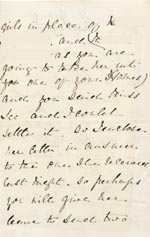 girls in place of
and
as you are
going to
you one of yours
and you send Miss
See and I could
settle it. so I enclose
her letter in answer
to the one I received
last night. so perhaps
you will give her
leave to send two